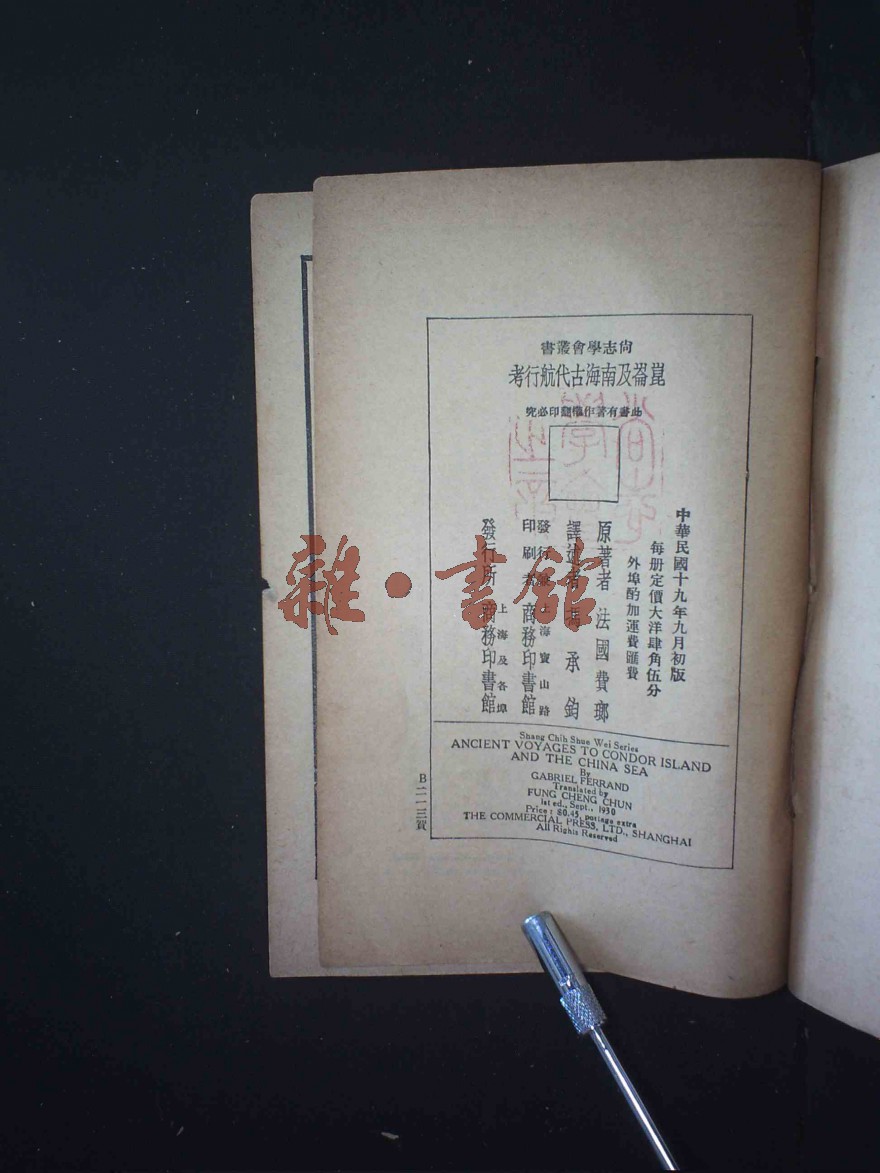 尙志學會叢書
崑崙及南海古代航行考
此書有著作權翻印必究
中華民國十九年九月初版
每册定價大洋肆角伍分
外埠酌加運費匯費
原著者 法國費瑯
譯述者 馮承鈞
發行兼印刷者 上海寶山路 商務印書館
發行所 上海及各埠 商務印書館
Shang Chih Shue Wei Series
ANCIENT VOYAGES TO CONDOR ISLAND
AND THE CHINA SEA
By
GABRIEL FERRAND
Translated by
FUNG CHENG CHUN
1st ed., Sept., 1930
Price: $0.45, postage extra
THE COMMERCIAL PRESS, LTD., SHANGHAI
All Rights Reserved
雜·書館